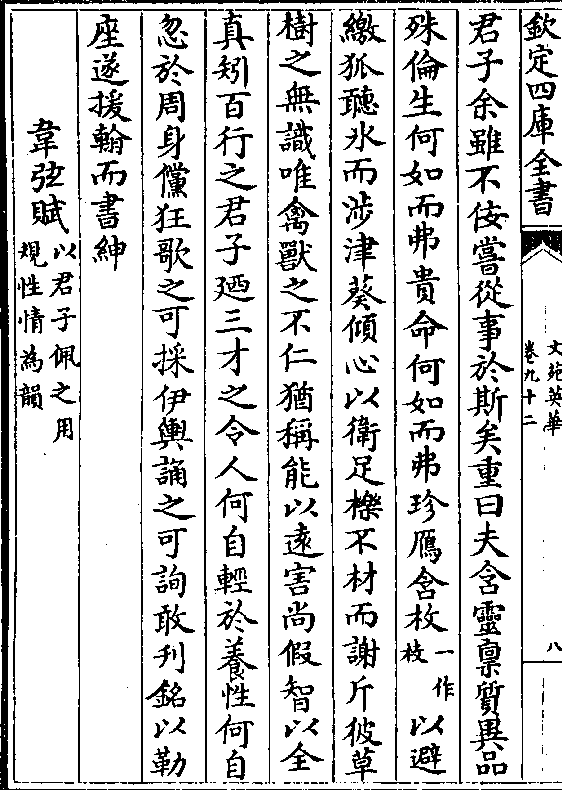 欽定四庫全書
文苑英華
卷九十二
八
君子余雖不佞嘗從事於斯矣重曰夫含靈稟質異品
殊倫生何如而弗貴命何如而弗珍鴈含枚一作枝以避
繳狐聽氷而涉津葵傾心以衛足櫟不材而謝斤彼草
樹之無識唯禽獸之不仁猶稱能以遠害尚假智以全
真矧百行之君子廼三才之令人何自輕於養性何自
忽於周身儻狂歌之可採伊輿誦之可詢敢刋銘以勒
座遂援翰而書紳
韋弦賦以君子佩之用規性情為韻